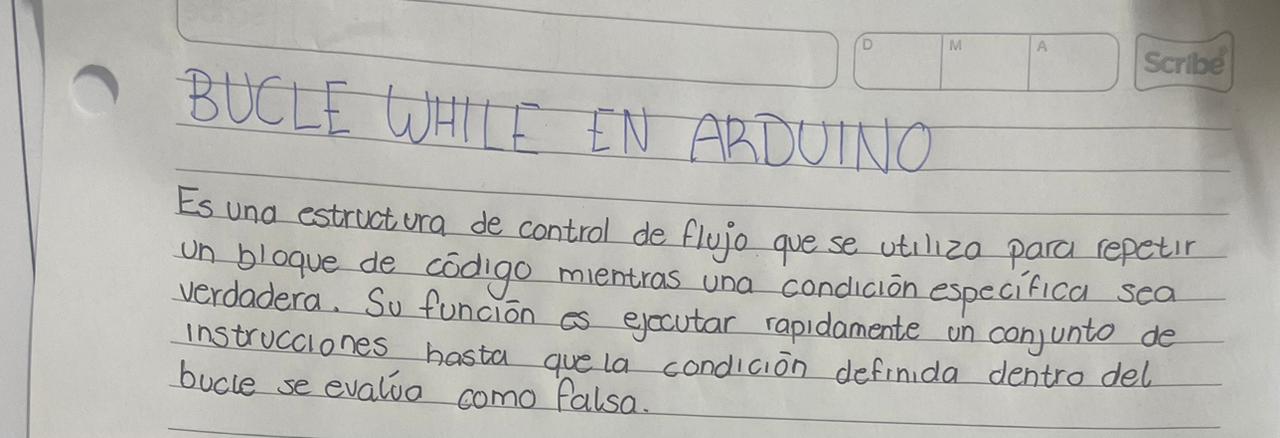 D M A Scribe
BUCLE WHILE EN ARDUINO
Es una estructura de control de flujo que se utiliza para repetir
un bloque de código mientras una condición específica sea
verdadera. Su función es ejecutar rapidamente un conjunto de
instrucciones hasta que la condición definida dentro del
bucle se evalúa como falsa.